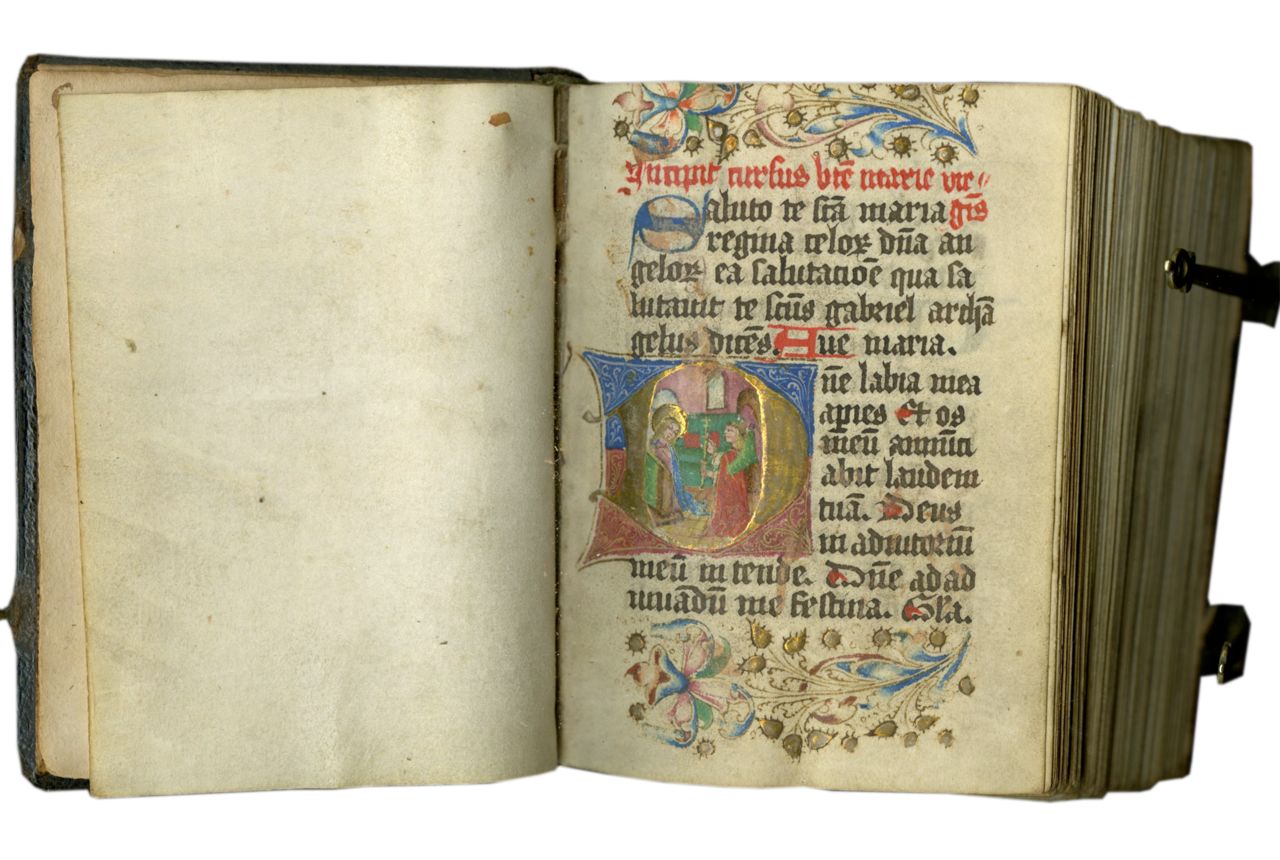 Incipit cursus btē marie vir
Saluto te sc̄ā maria gīs
regina celoꝝ dn̄a an
geloꝝ ea salutacōe qua sa
lutauit te sc̄us gabriel archā
gelus dicēs. Aue maria.
Dn̄e labia mea
aṗies Et os
meū annūci
abit laudem
tuā. Deus
in adiutoriū
meū in tende. Dn̄e ad ad
iuuādū me festina. Gl̄a.